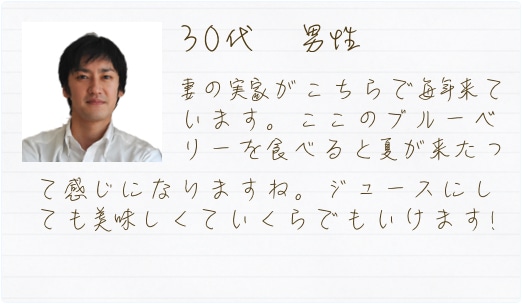 30代　男性
妻の実家がこちらで毎年来て
います。ここのブルーベ
リーを食べると夏が来たっ
て感じになりますね。ジュースにし
ても美味しくていくらでもいけます!